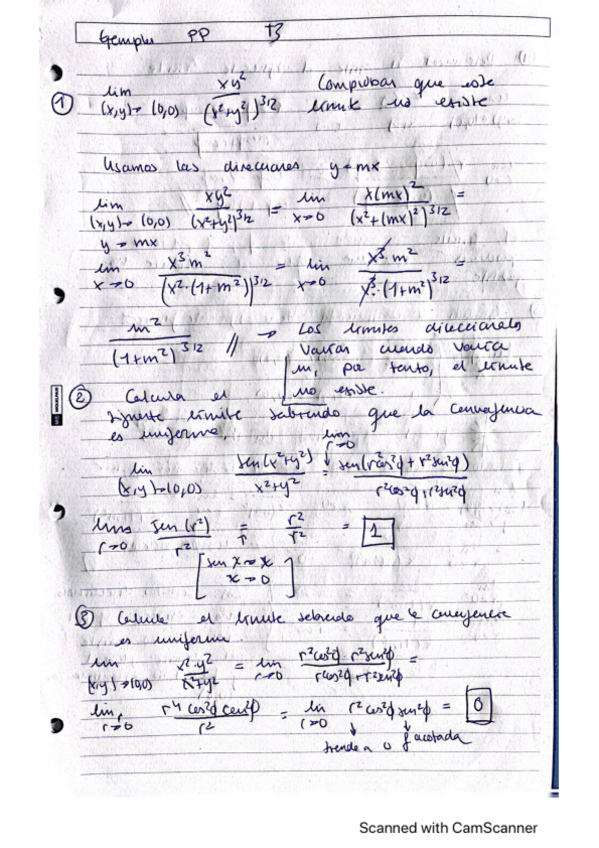 Ejemplos PP T3
① lim (x,y)→(0,0) xy²/(x²+y²)^3/2 Comprobar que este límite no existe
Usamos las direcciones y=mx
lim (x,y)→(0,0) y→mx xy²/(x²+y²)^3/2 = lim x→0 x(mx)²/(x²+(mx)²)^3/2 =
lim x→0 x³m²/(x²·(1+m²))^3/2 = lim x→0 x³·m²/x³·(1+m²)^3/2 =
m²/(1+m²)^3/2 // → Los límites direccionales
varían cuando varía
m, por tanto, el límite
no existe.
② Calcula el
siguiente límite sabiendo que la convergencia
es uniforme,
lim (x,y)→(0,0) sen(x²+y²)/x²+y² = lim r→0 sen(r²cos²φ + r²sen²φ)/r²cos²φ+r²sen²φ
lim r→0 sen(r²)/r² = r²/r² = 1
[sen x ≈ x
x→0]
③ Calcula el límite sabiendo que la convergencia
es uniforme
lim (x,y)→(0,0) x²·y²/x²+y² = lim r→0 r²cos²φ·r²sen²φ/r²cos²φ+r²sen²φ =
lim r→0 r⁴cos²φ cen²φ/r² = lim r→0 r²cos²φsen²φ = 0
↓ tiende a 0 ↓ f acotada
Scanned with CamScanner